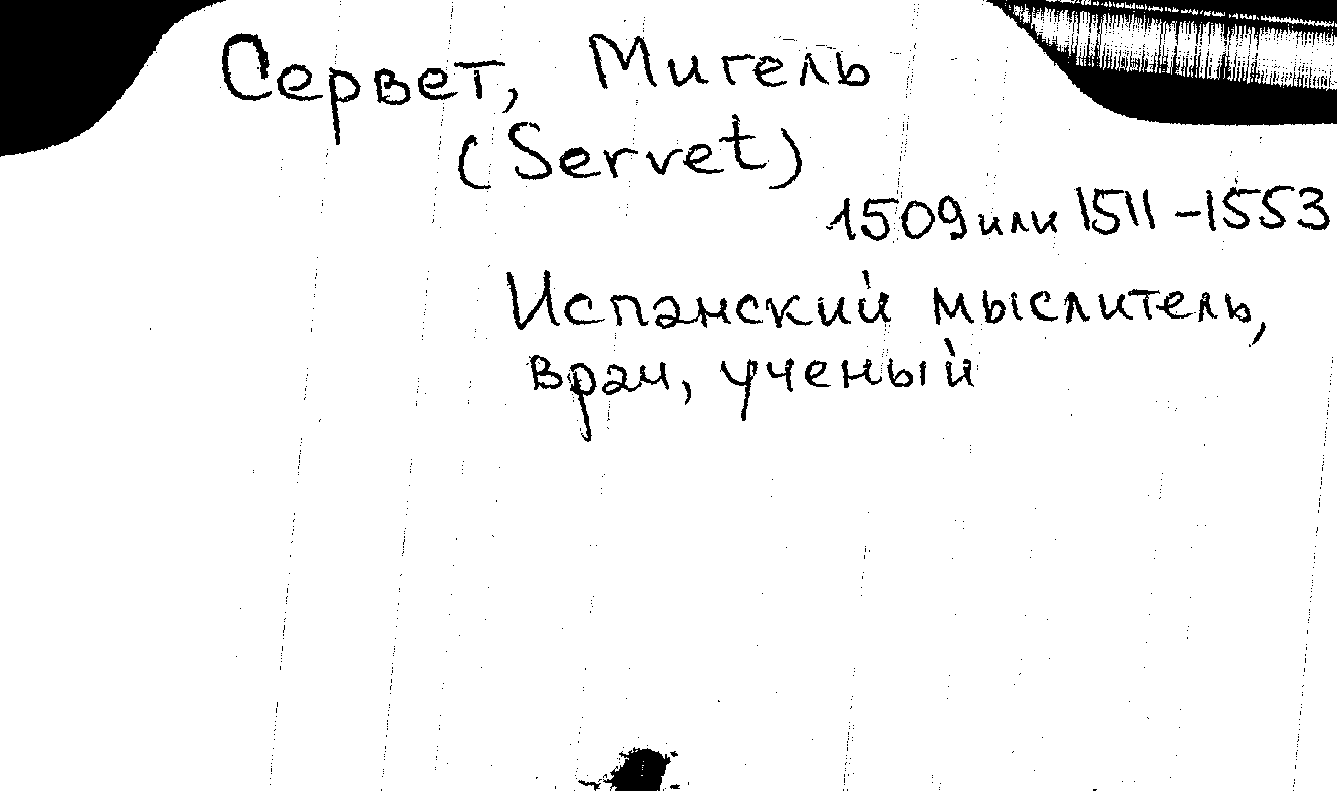 Сервет, Мигель
(Servet)
1509 или 1511-1553
Испанский мыслитель,
врач, ученый